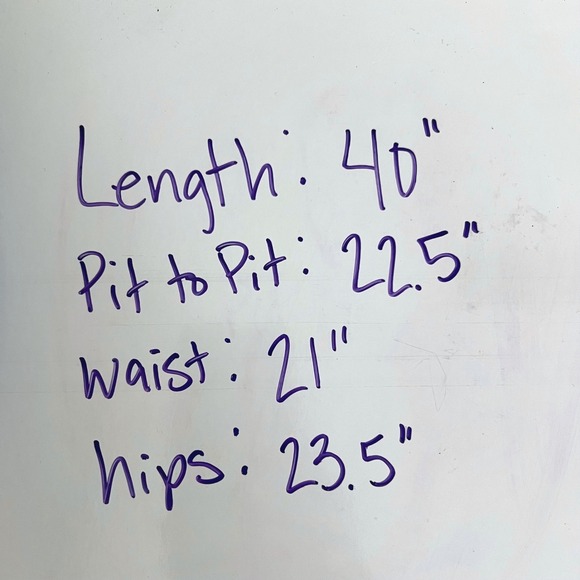 Length: 40"
Pit to Pit: 22.5"
waist: 21"
hips: 23.5"